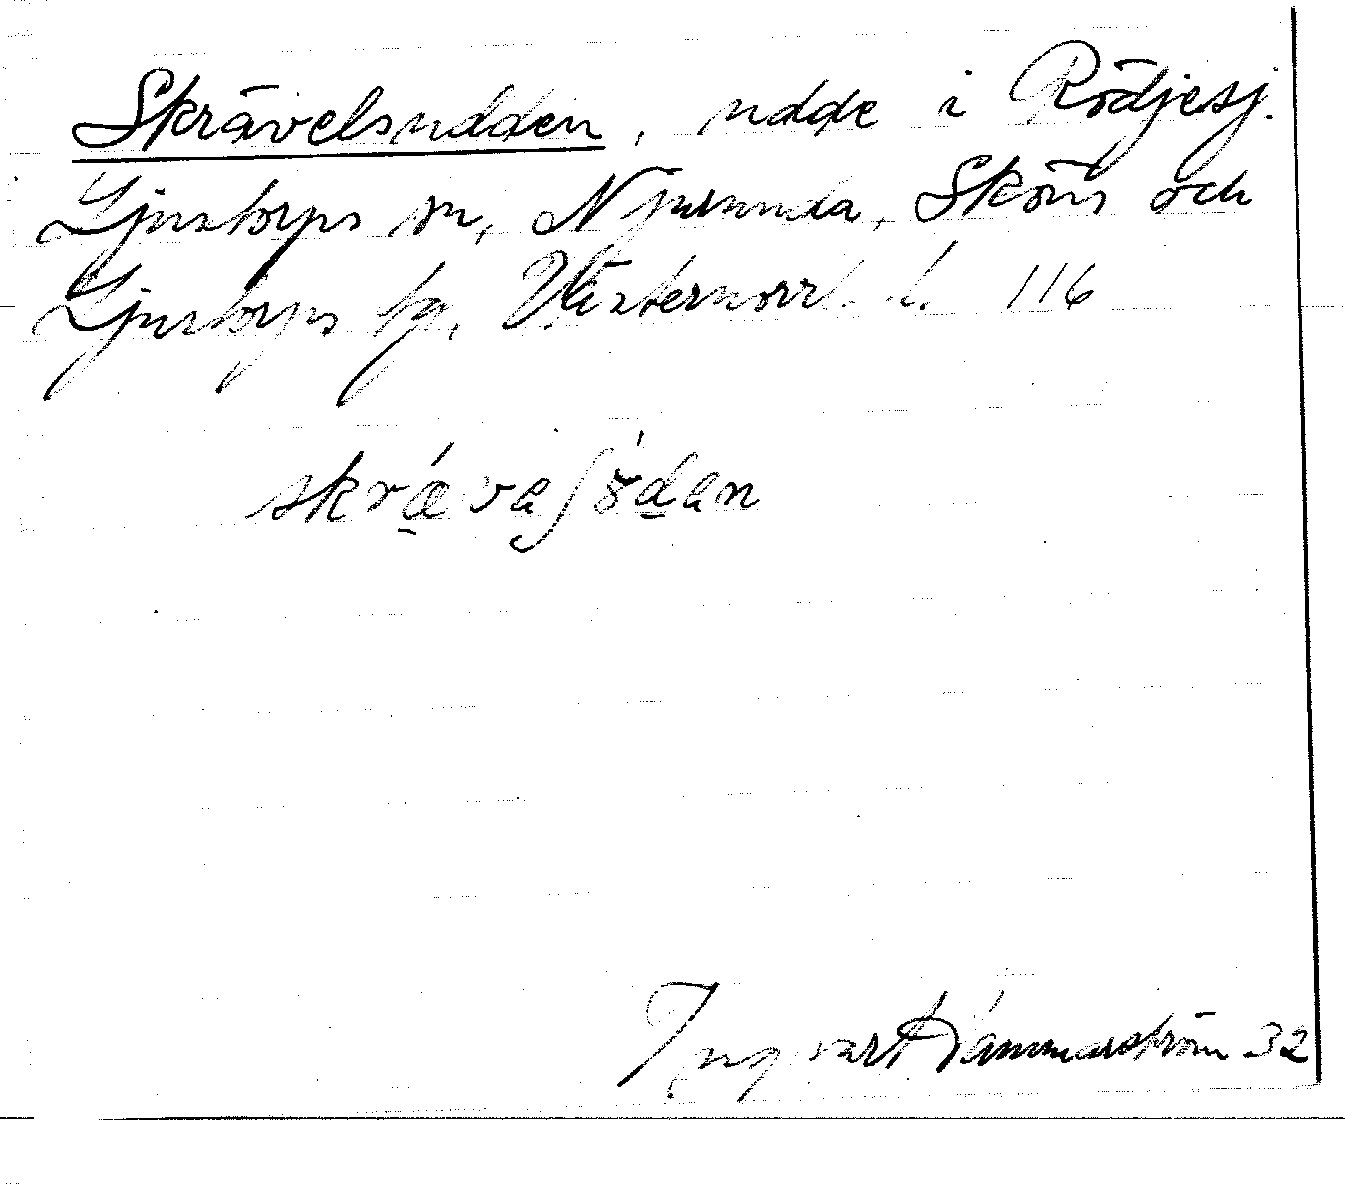 Skrävelsudden, udde i Rödjesj.
Ljustorps sn, Njurunda, Sköns och
Ljustorps tg, Västernorrl. l. 116
Ingvart Hammarström 32